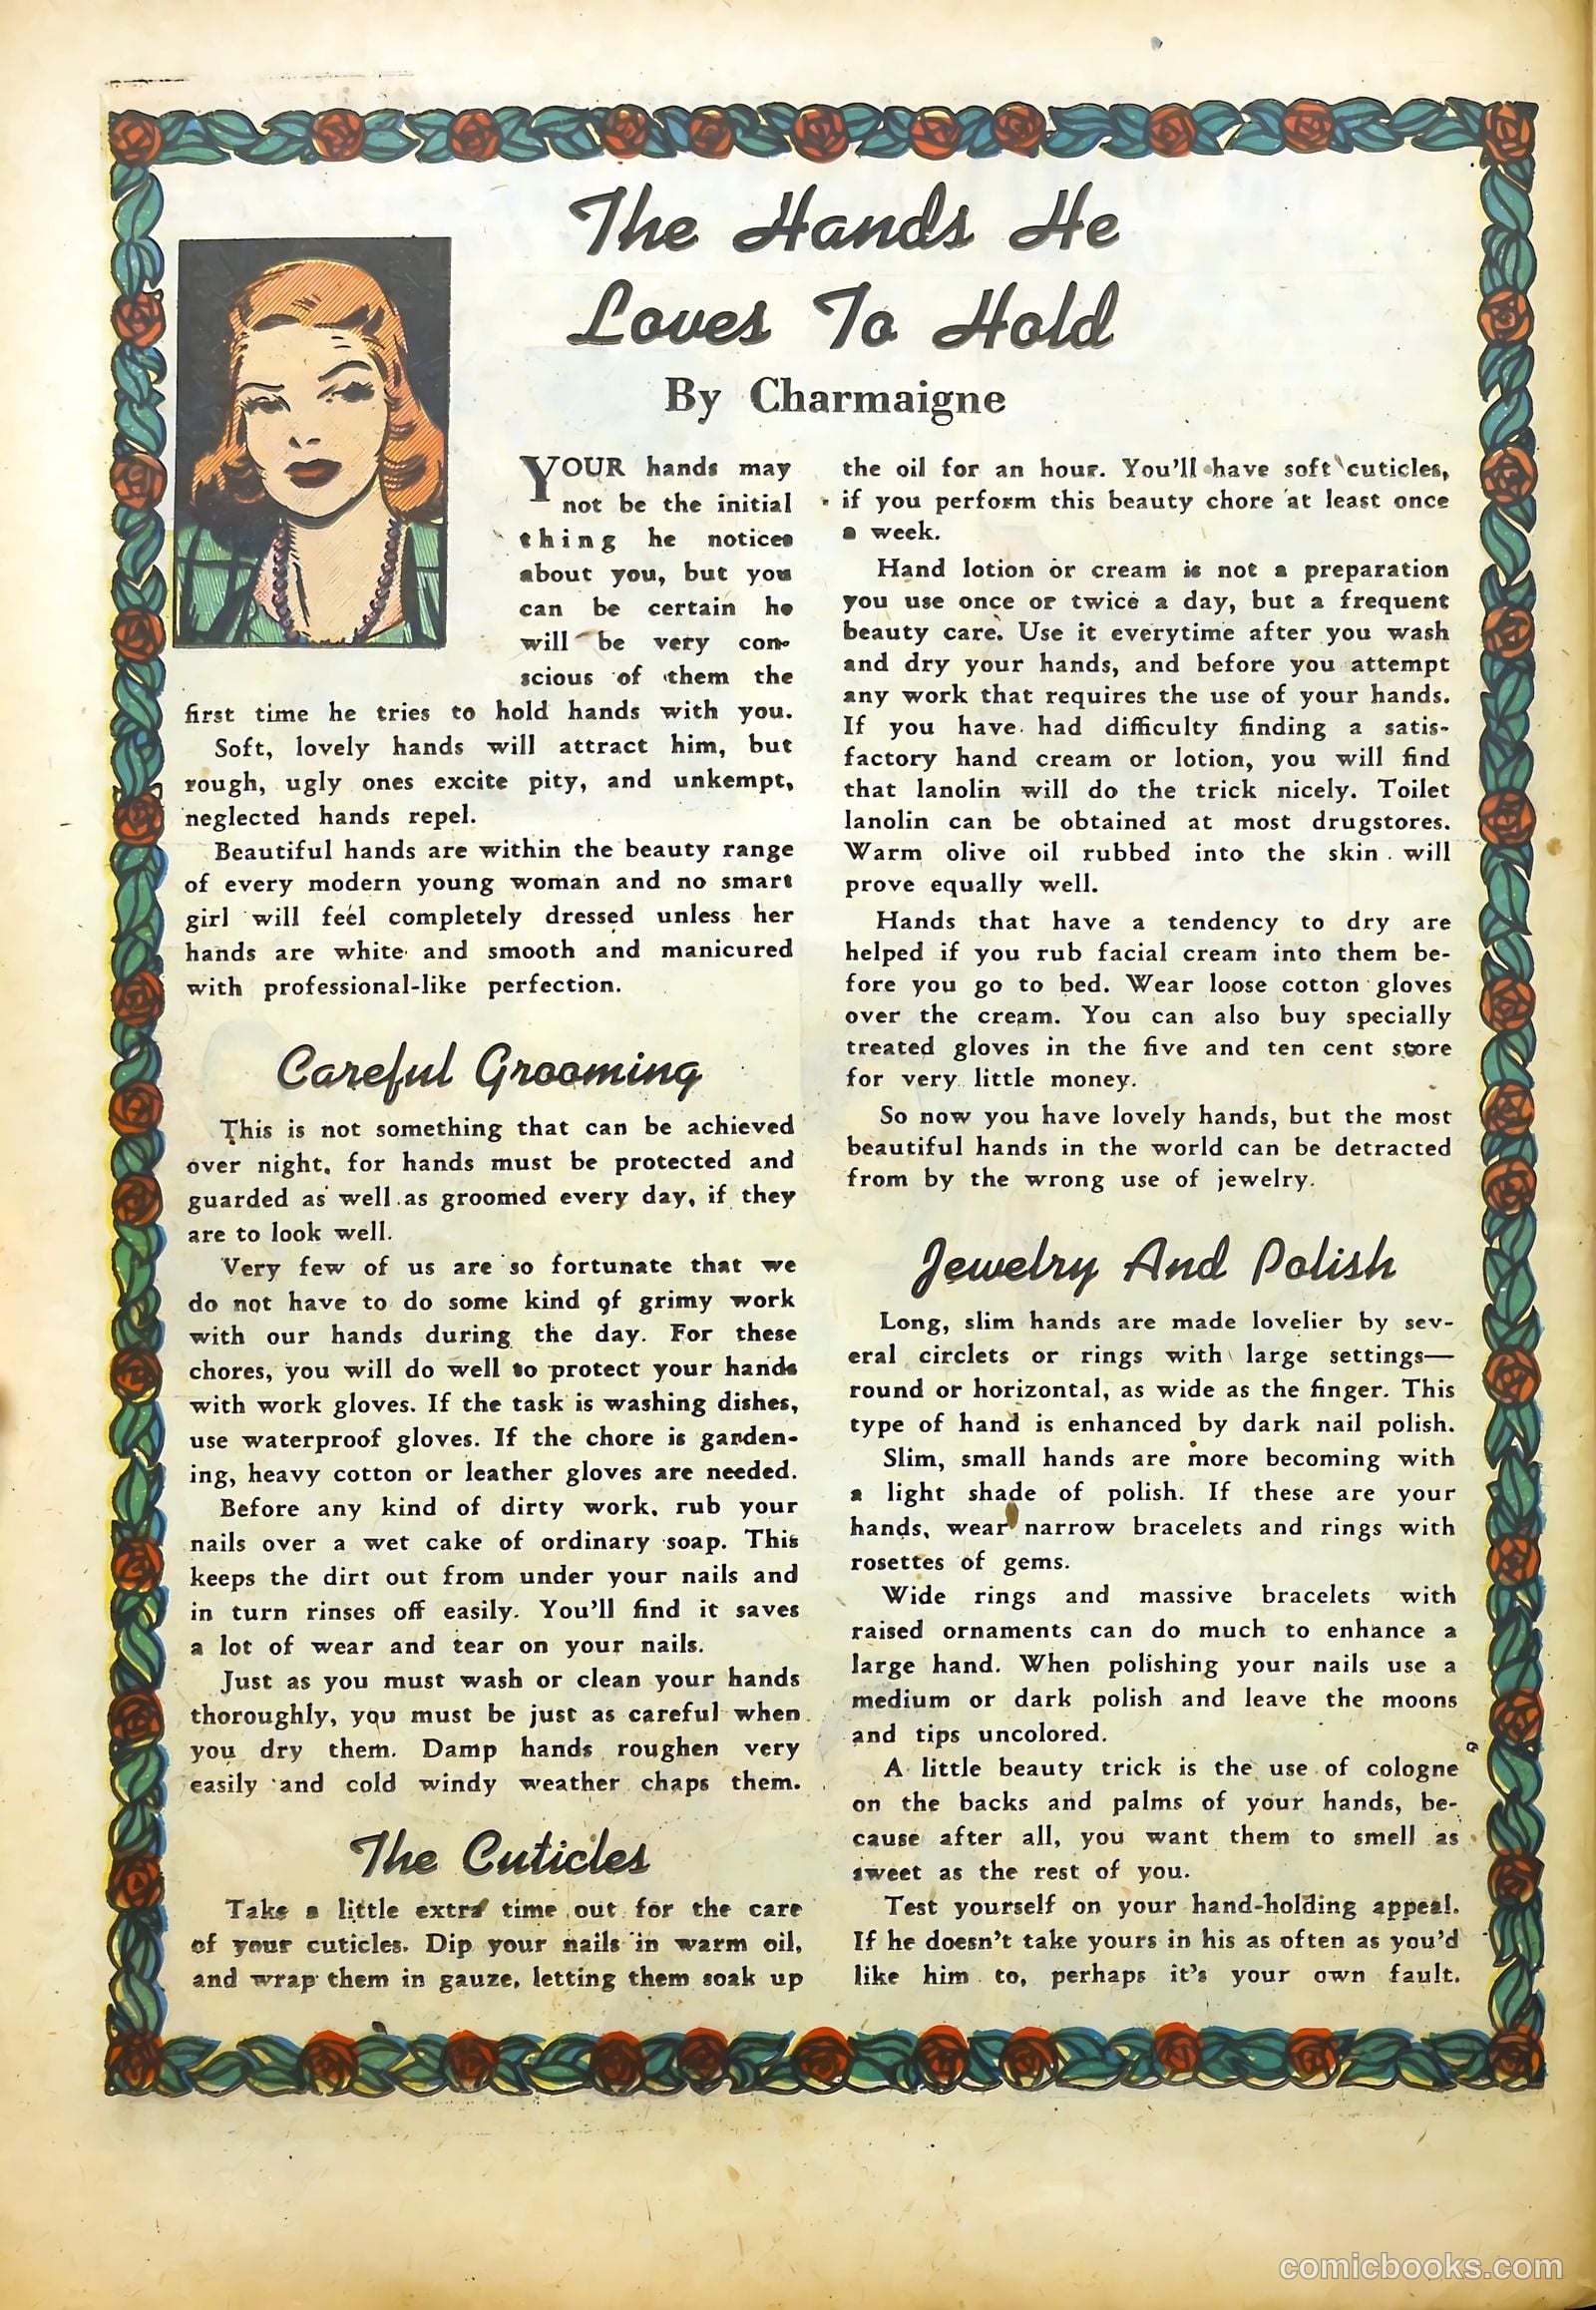 The Hands He
Loves To Hold
By Charmaigne
YOUR hands may
not be the initial
thing he notices
about you, but you
can be certain he
will be very con-
scious of them the
first time he tries to hold hands with you.
Soft, lovely hands will attract him, but
rough, ugly ones excite pity, and unkempt,
neglected hands repel.
Beautiful hands are within the beauty range
of every modern young woman and no smart
girl will feel completely dressed unless her
hands are white and smooth and manicured
with professional-like perfection.
Careful Grooming
This is not something that can be achieved
over night, for hands must be protected and
guarded as well as groomed every day, if they
are to look well.
Very few of us are so fortunate that we
do not have to do some kind of grimy work
with our hands during the day. For these
chores, you will do well to protect your hands
with work gloves. If the task is washing dishes,
use waterproof gloves. If the chore is garden-
ing, heavy cotton or leather gloves are needed.
Before any kind of dirty work, rub your
nails over a wet cake of ordinary soap. This
keeps the dirt out from under your nails and
in turn rinses off easily. You'll find it saves
a lot of wear and tear on your nails.
Just as you must wash or clean your hands
thoroughly, you must be just as careful when
you dry them. Damp hands roughen very
easily and cold windy weather chaps them.
The Cuticles
Take a little extra time out for the care
of your cuticles. Dip your nails in warm oil,
and wrap them in gauze, letting them soak up
the oil for an hour. You'll have soft cuticles,
if you perform this beauty chore at least once
a week.
Hand lotion or cream is not a preparation
you use once or twice a day, but a frequent
beauty care. Use it everytime after you wash
and dry your hands, and before you attempt
any work that requires the use of your hands.
If you have had difficulty finding a satis-
factory hand cream or lotion, you will find
that lanolin will do the trick nicely. Toilet
lanolin can be obtained at most drugstores.
Warm olive oil rubbed into the skin will
prove equally well.
Hands that have a tendency to dry are
helped if you rub facial cream into them be-
fore you go to bed. Wear loose cotton gloves
over the cream. You can also buy specially
treated gloves in the five and ten cent store
for very little money.
So now you have lovely hands, but the most
beautiful hands in the world can be detracted
from by the wrong use of jewelry.
Jewelry And Polish
Long, slim hands are made lovelier by sev-
eral circlets or rings with large settings—
round or horizontal, as wide as the finger. This
type of hand is enhanced by dark nail polish.
Slim, small hands are more becoming with
a light shade of polish. If these are your
hands, wear narrow bracelets and rings with
rosettes of gems.
Wide rings and massive bracelets with
raised ornaments can do much to enhance a
large hand. When polishing your nails use a
medium or dark polish and leave the moons
and tips uncolored.
A little beauty trick is the use of cologne
on the backs and palms of your hands, be-
cause after all, you want them to smell as
sweet as the rest of you.
Test yourself on your hand-holding appeal.
If he doesn't take yours in his as often as you'd
like him to, perhaps it's your own fault.
comicbooks.com